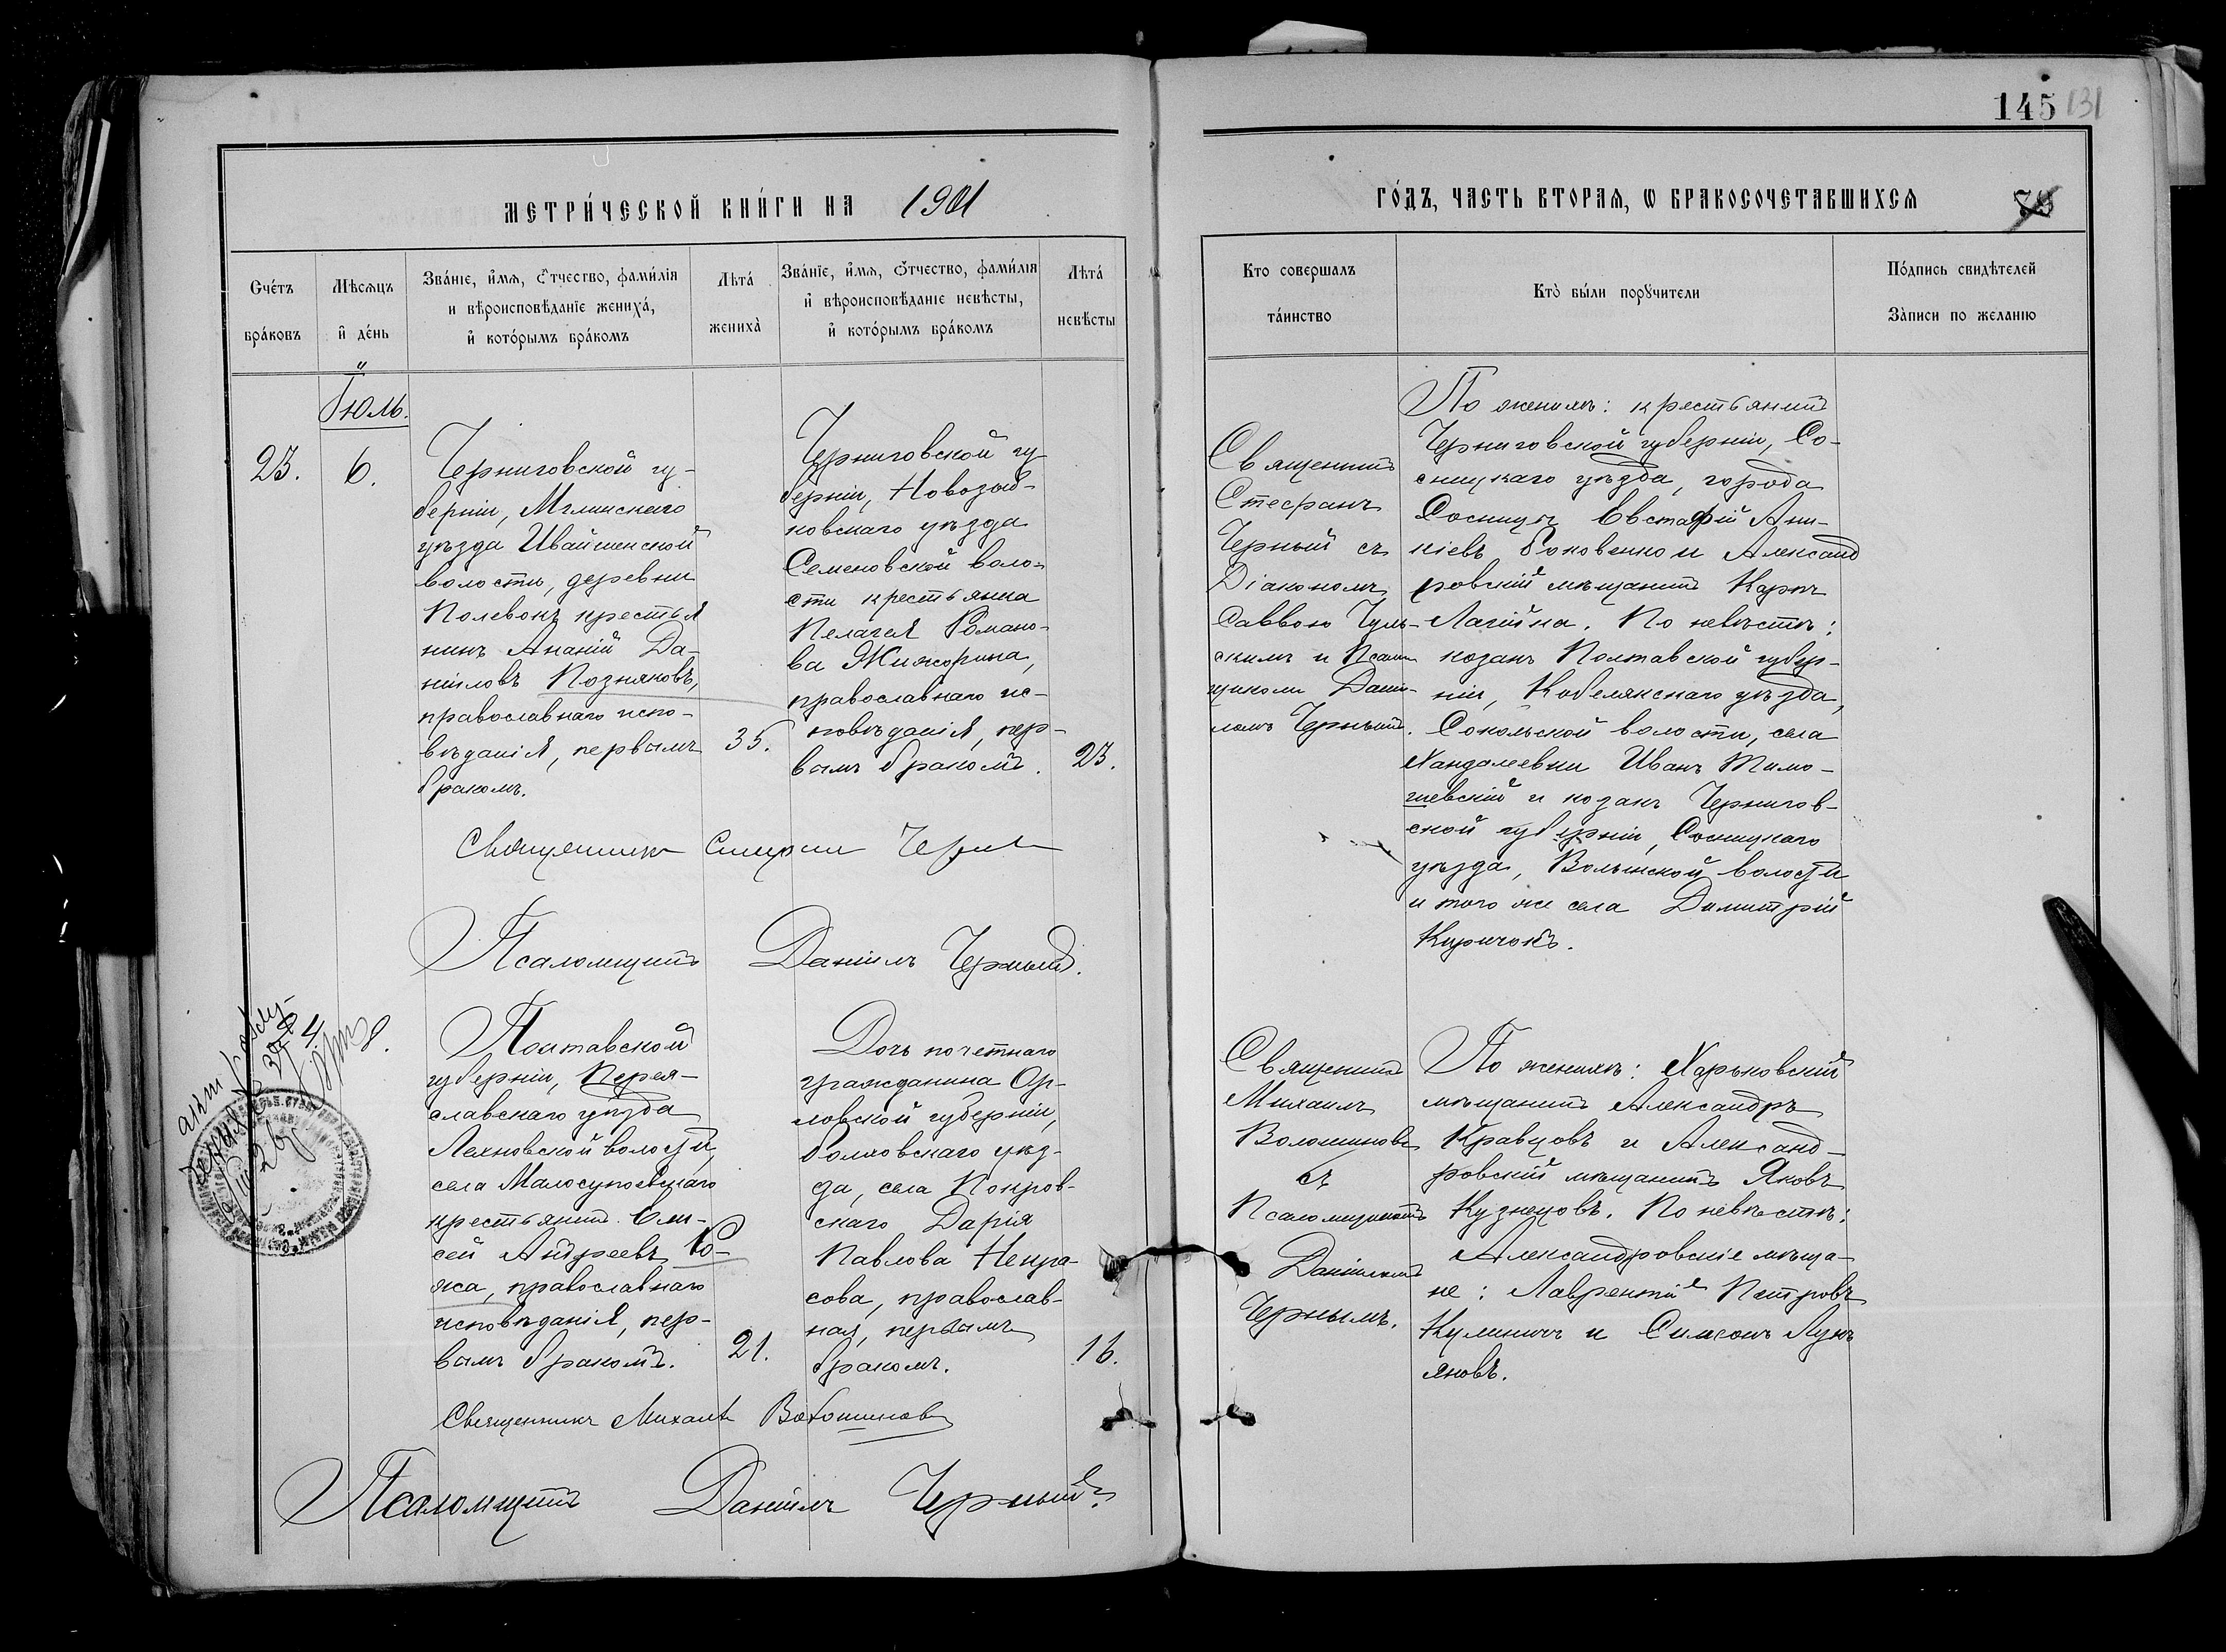 145 131
МЕТРИ́ЧЕСКОЙ КНИ́ГИ НА 1901
ГО́ДЪ, ЧАСТЬ ВТОРАЯ, Ѡ БРАКОСОЧЕТАВШИХСЯ
Сче́тъ бра́ковъ
Мѣ́сяцъ и де́нь
Зва́нїе, и́мя, ѻ́тчество, фами́лїя
и вѣроисповѣ́данїе жениха̀,
и кото́рымъ бра́комъ
Лѣта̀ жениха̀
Зва́нїе, и́мя, ѻ́тчество, фами́лїя
и вѣроисповѣ́данїе невѣ́сты,
и кото́рымъ бра́комъ
Лѣта̀ невѣ́сты
Кто совершалъ
та́инство
Кто̀ бы́ли порꙋчители
По́дпись свидѣтелей
За́писи по желанїю
Іюль.
23.
6.
Черниговской гу-
берніи, Мглинскаго
уѣзда Ивайтенской
волости, деревни
Полевокъ крестья
нинъ Ананій Да-
ніиловъ Позняковъ,
православнаго испо-
вѣданія, первымъ
бракомъ.
35.
Черниговской гу-
берніи, Новозыб-
ковскаго уѣзда
Семеновской воло-
сти крестьянка
Пелагея Романо-
ва Жижорина,
православнаго ис-
повѣданія, пер-
вымъ бракомъ.
23.
Священникъ
Стефанъ
Черный съ
Діакономъ
Саввою Чуль-
скимъ и Псалм
щикомъ Дані-
ломъ Чернымъ.
По женихѣ: крестьянинъ
Черниговской губерніи, Со-
сницкаго уѣзда, города
Сосницы Евстафій Ани-
кіевъ Боковенко и Александ
ровскій мѣщанинъ Карпъ
Лагійна. По невѣстѣ:
козакъ Полтавской губер-
ніи, Кобелякскаго уѣзда,
Сокольской волости, села
Хандалеевки Иванъ Тимо-
шевскій и козакъ Чернигов-
ской губерніи, Сосницкаго
уѣзда, Волынской волости
и того же села Димитрій
Киричокъ.
Священникъ Черный
Псаломщикъ Даніилъ Черный.
8.
Полтавской
губерніи, Перея-
славскаго уѣзда
Лехновской волости,
села Малосупоевскаго
крестьянинъ Ели-
сей Андреевъ Ко-
жа, православнаго
исповѣданія, пер-
вымъ бракомъ.
21.
Дочь почетнаго
гражданина Ор-
ловской губерніи,
Болховскаго уѣз-
да, села Покров-
скаго Дарія
Павлова Некра-
сова, православ-
ная, первымъ
бракомъ.
16.
Священникъ
Михаилъ
Волошиновъ
съ
Псаломщикомъ
Даніиломъ
Чернымъ.
По женихѣ: Харьковскій
мѣщанинъ Александръ
Кравцовъ и Александ-
ровскій мѣщанинъ Яковъ
Кузнецовъ. По невѣстѣ:
Александровскіе мѣща-
не: Лаврентій Петровъ
Кулиничъ и Симеонъ Лукъ
яновъ.
Священникъ Михаилъ Волошиновъ
Псаломщикъ Даніилъ Черный.